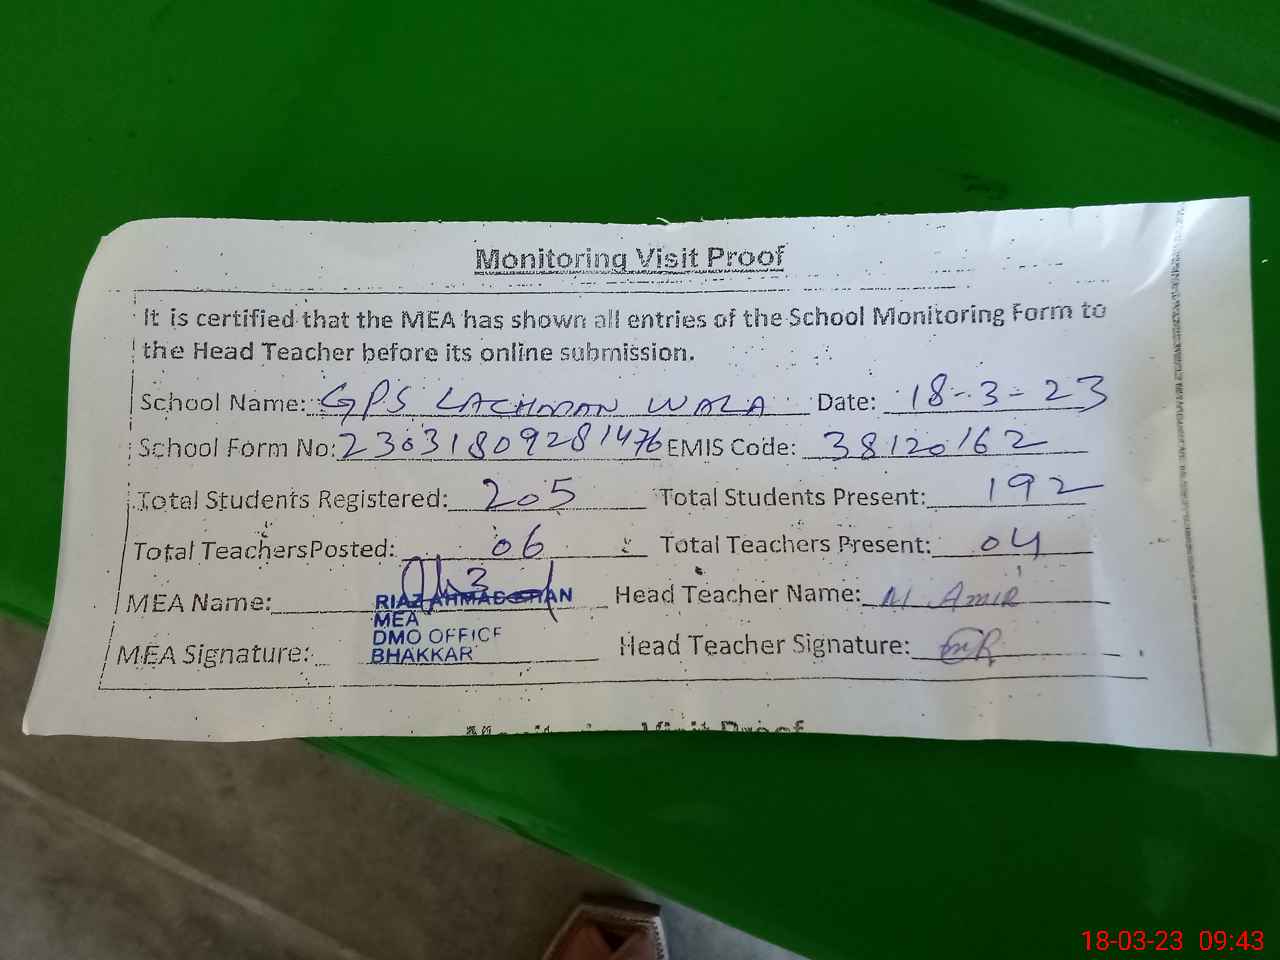 Monitoring Visit Proof
It is certified that the MEA has shown all entries of the School Monitoring Form to
the Head Teacher before its online submission.
School Name: GPS LACHMAN WALA Date: 18-3-23
School Form No: 23031809281476 EMIS Code: 38120162
Total Students Registered: 205 Total Students Present: 192
Total TeachersPosted: 06 Total Teachers Present: 04
MEA Name: RIAZ AHMAD KHAN Head Teacher Name: M Amir
MEA
DMO OFFICE
MEA Signature: BHAKKAR Head Teacher Signature:
Monitoring Visit Proof
18-03-23 09:43